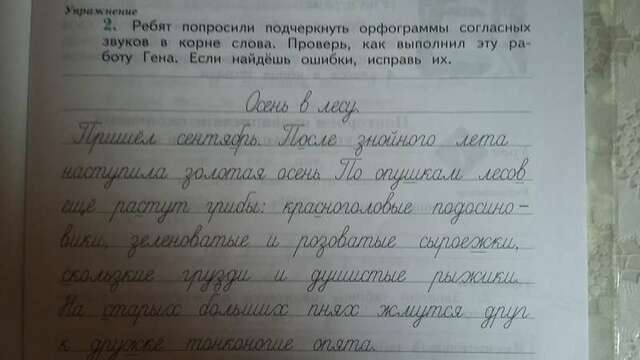 Упражнение
2. Ребят попросили подчеркнуть орфограммы согласных
звуков в корне слова. Проверь, как выполнил эту ра-
боту Гена. Если найдёшь ошибки, исправь их.
Осень в лесу.
Пришёл сентябрь. После знойного лета
наступила золотая осень. По опушкам лесов
ещё растут грибы: красноголовые подосино-
вики, зеленоватые и розоватые сыроежки,
скользкие грузди и душистые рыжики.
На старых больших пнях жмутся друг
к дружке тонконогие опята.